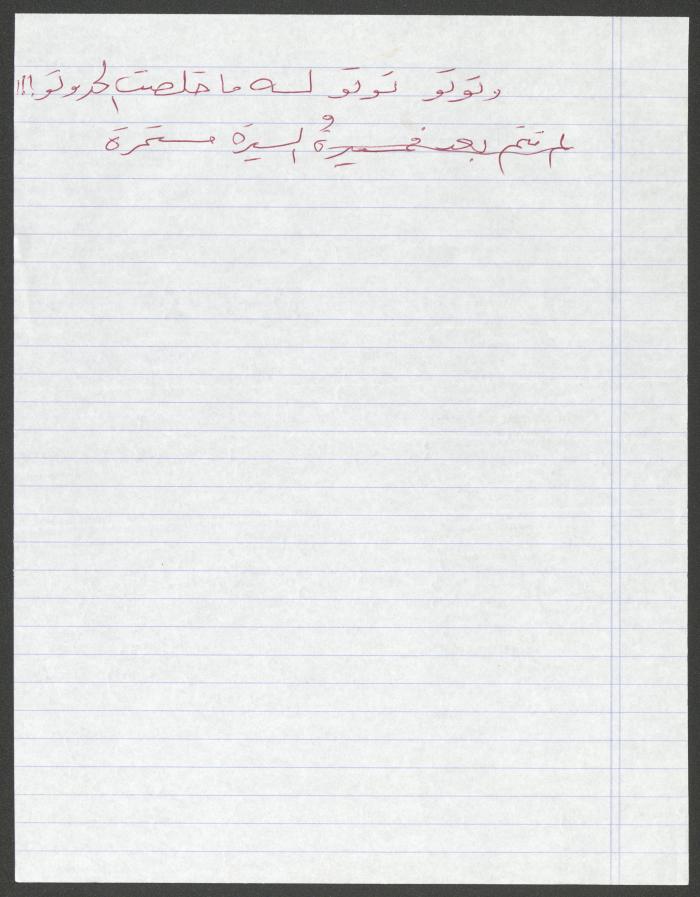 وتوتو توتو لسه ما خلصت الحدوتو!!!
لم تتم بعد فمسيرةُ السيرة مستمرة